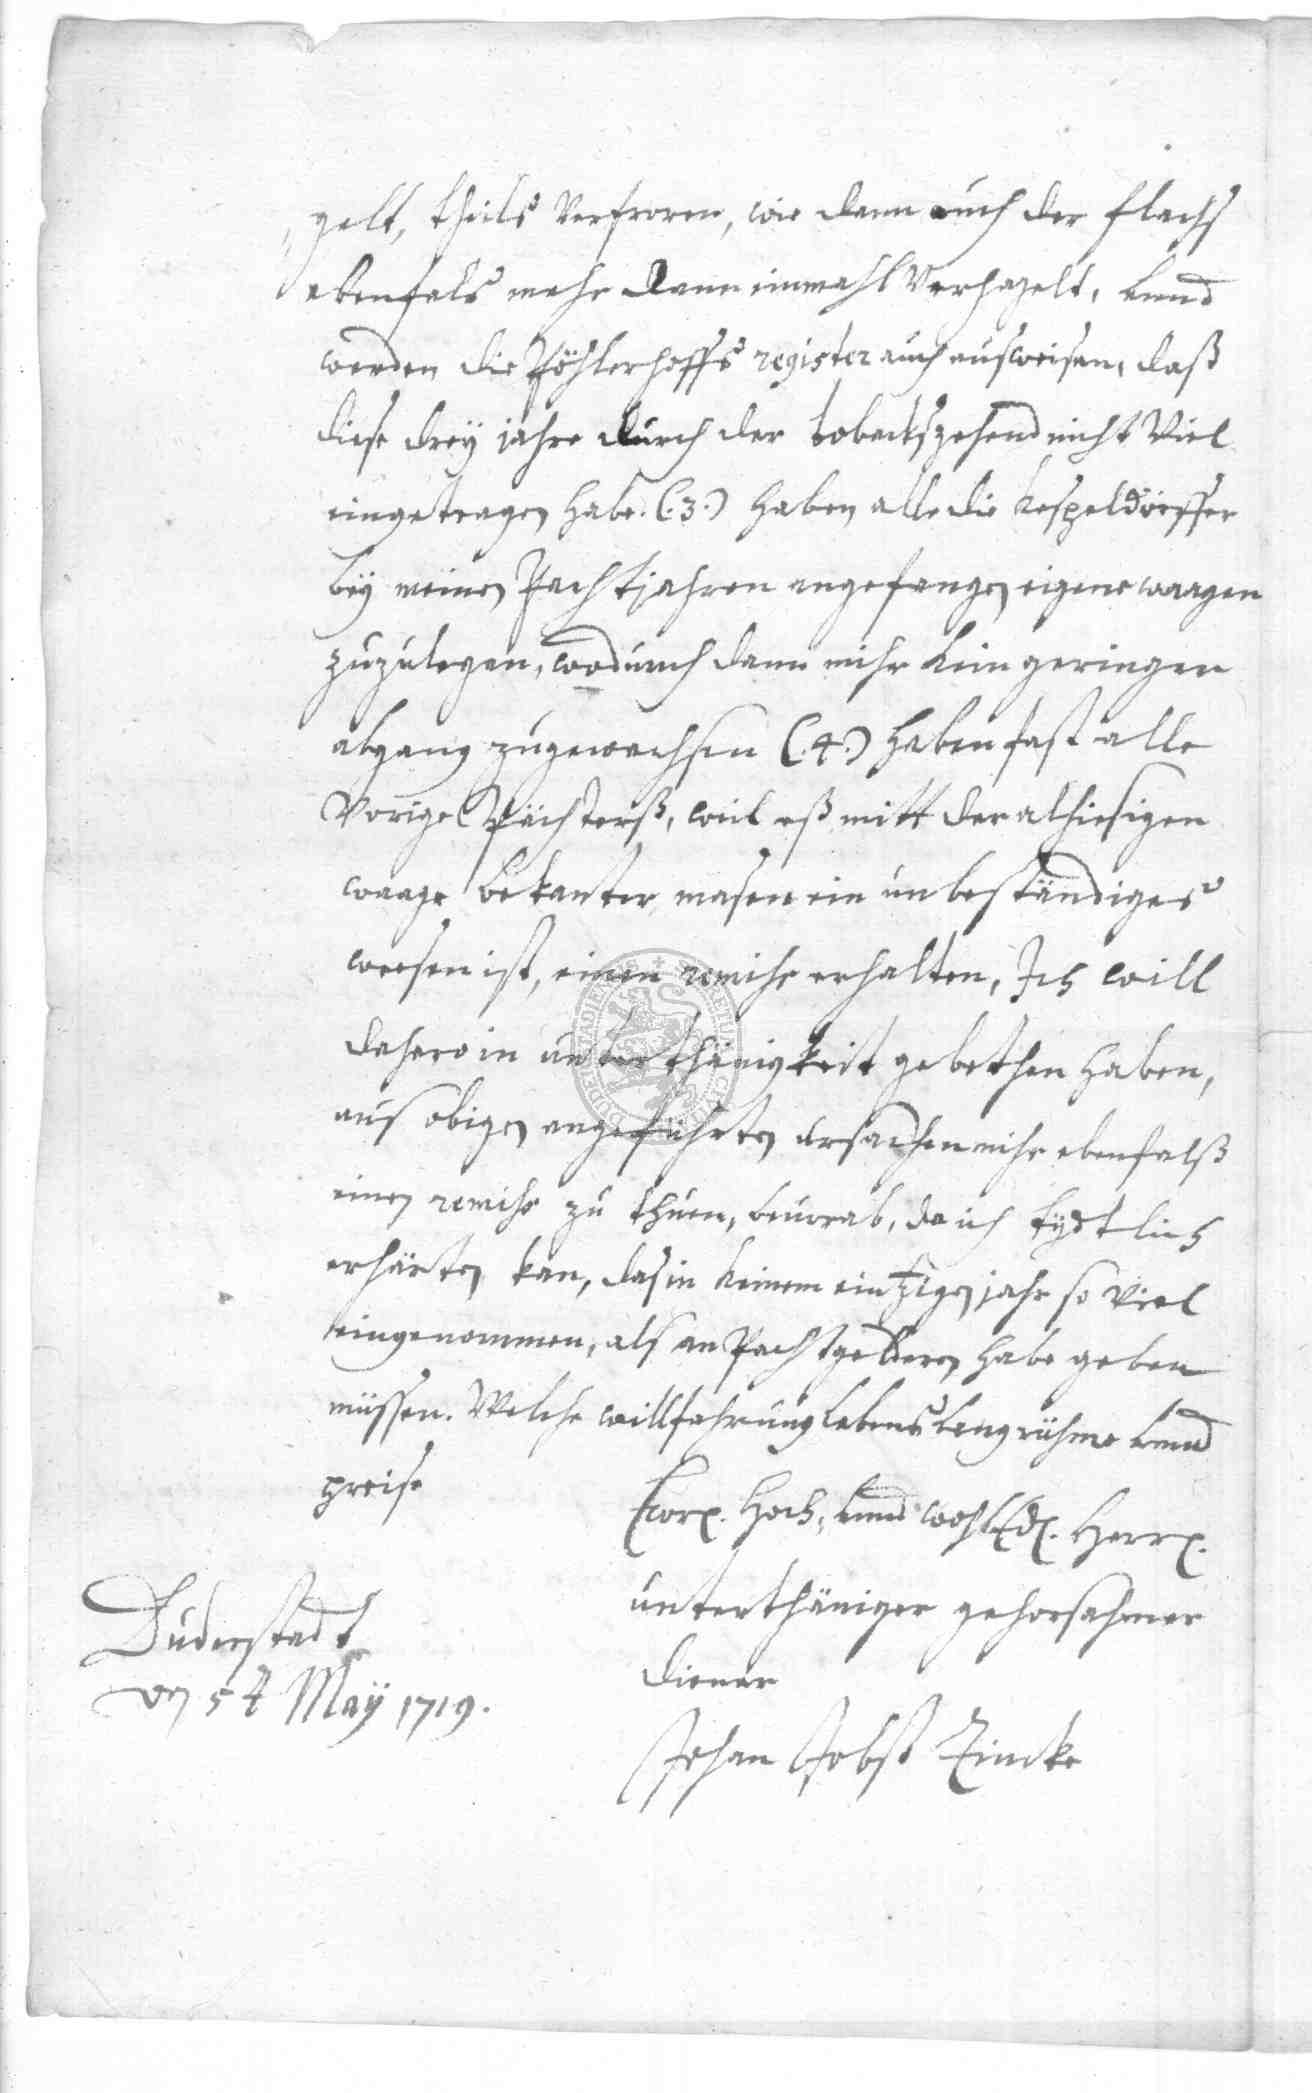 gelt, theils verfroren, wie dann auch der flachs
ebenfals mehr dann einmahl verhagelt, unnd
werden die Pöhlerhoffs register auch ausweisen, daß
diese drey jahre durch der tobackszehend nicht viel
eingetragen habe. (.3.) haben alle die Kespeldörffer
bey meinen Pachtjahren angefangen eigene waagen
zuzulegen, wodurch dann mihr kein geringen
abgang zugewachsen (.4.) haben fast alle
vorige Pächterß, weil eß mitt der alhiesigen
waage bekanter masen ein unbeständiges
weesen ist, einen remihs erhalten, Ich will
dahero in unterthänigkeit gebethen haben,
aus obigen angeführten ursachen mihr ebenfalß
einen remihs zu thuen, bevorab, da ich eydtlich
erhärten kan, das in keinem eintzigen jahr so viel
eingenommen, als an Pachtgeldern habe geben
müssen. Welche willfahrung lebenslang rühme unnd
preise
Ewr. Hoch, unnd wohlEdl. Herr.
unterthäniger gehorsahmer
diener
Johan Jobst Zincke
Duderstadt
den 5t May 1719.